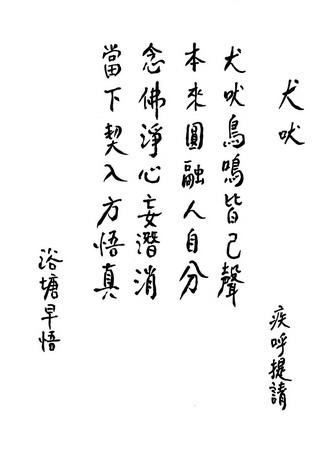 犬吠
疾呼提請
犬吠鳥鳴皆己聲
本來圓融人自分
念佛淨心妄潛消
當下契入方悟真
浴塘早悟